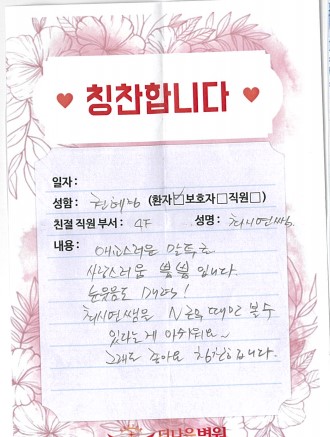 ♥ 칭찬합니다 ♥
일자 :
성함 : 천혜정 (환자☑보호자□직원□)
친절 직원 부서 : 4F 성명 : 최시연쌤.
내용 : 애교스러운 말투로
사랑스러움 뿜뿜 입니다.
눈웃음도 매력!
최시연쌤을 N근무 때만 볼수
있다는게 아쉬워요~
그래도 좋아요 칭찬합니다.
더나은병원